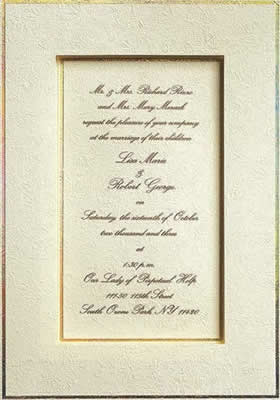 Mr. & Mrs. Richard Russo
and Mrs. Mary Musack
request the pleasure of your company
at the marriage of their children
Lisa Marie
&
Robert George
on
Saturday the sixteenth of October
two thousand and three
at
1:30 p.m.
Our Lady of Perpetual Help
111-30 115th Street
South Ozone Park, NY 11420